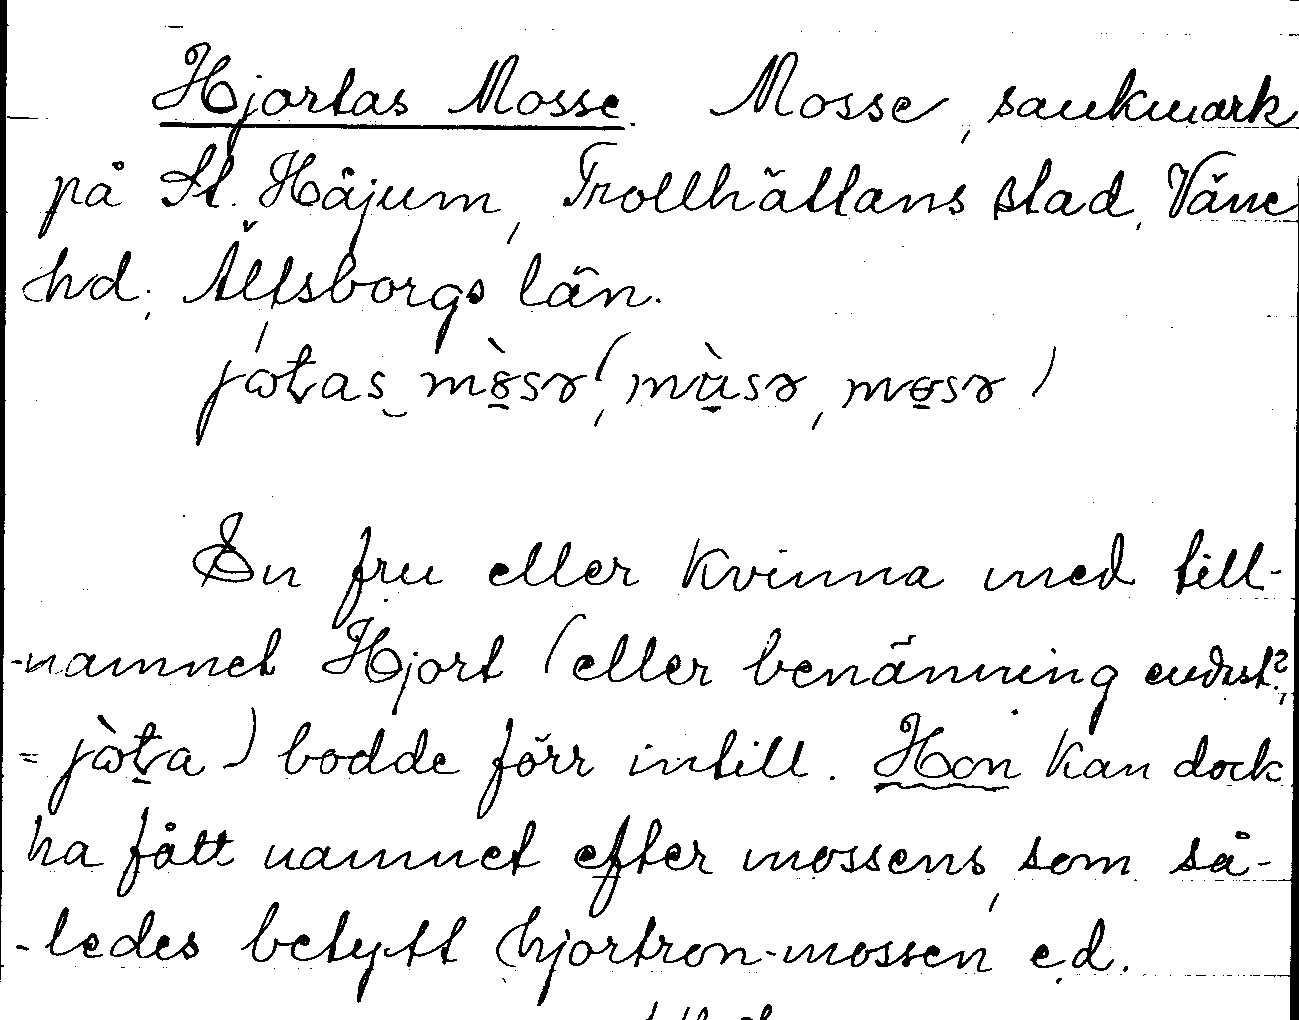 Hjortas Mosse. Mosse, sankmark
på St. Håjum, Trollhättans stad, Väne
hd, Älfsborgs län.
En fru eller kvinna med till-
-namnet Hjort (eller benämning endast?
bodde förr intill. Hon kan dock
ha fått namnet efter mossens, som så-
-ledes betytt hjortron-mossen e.d.